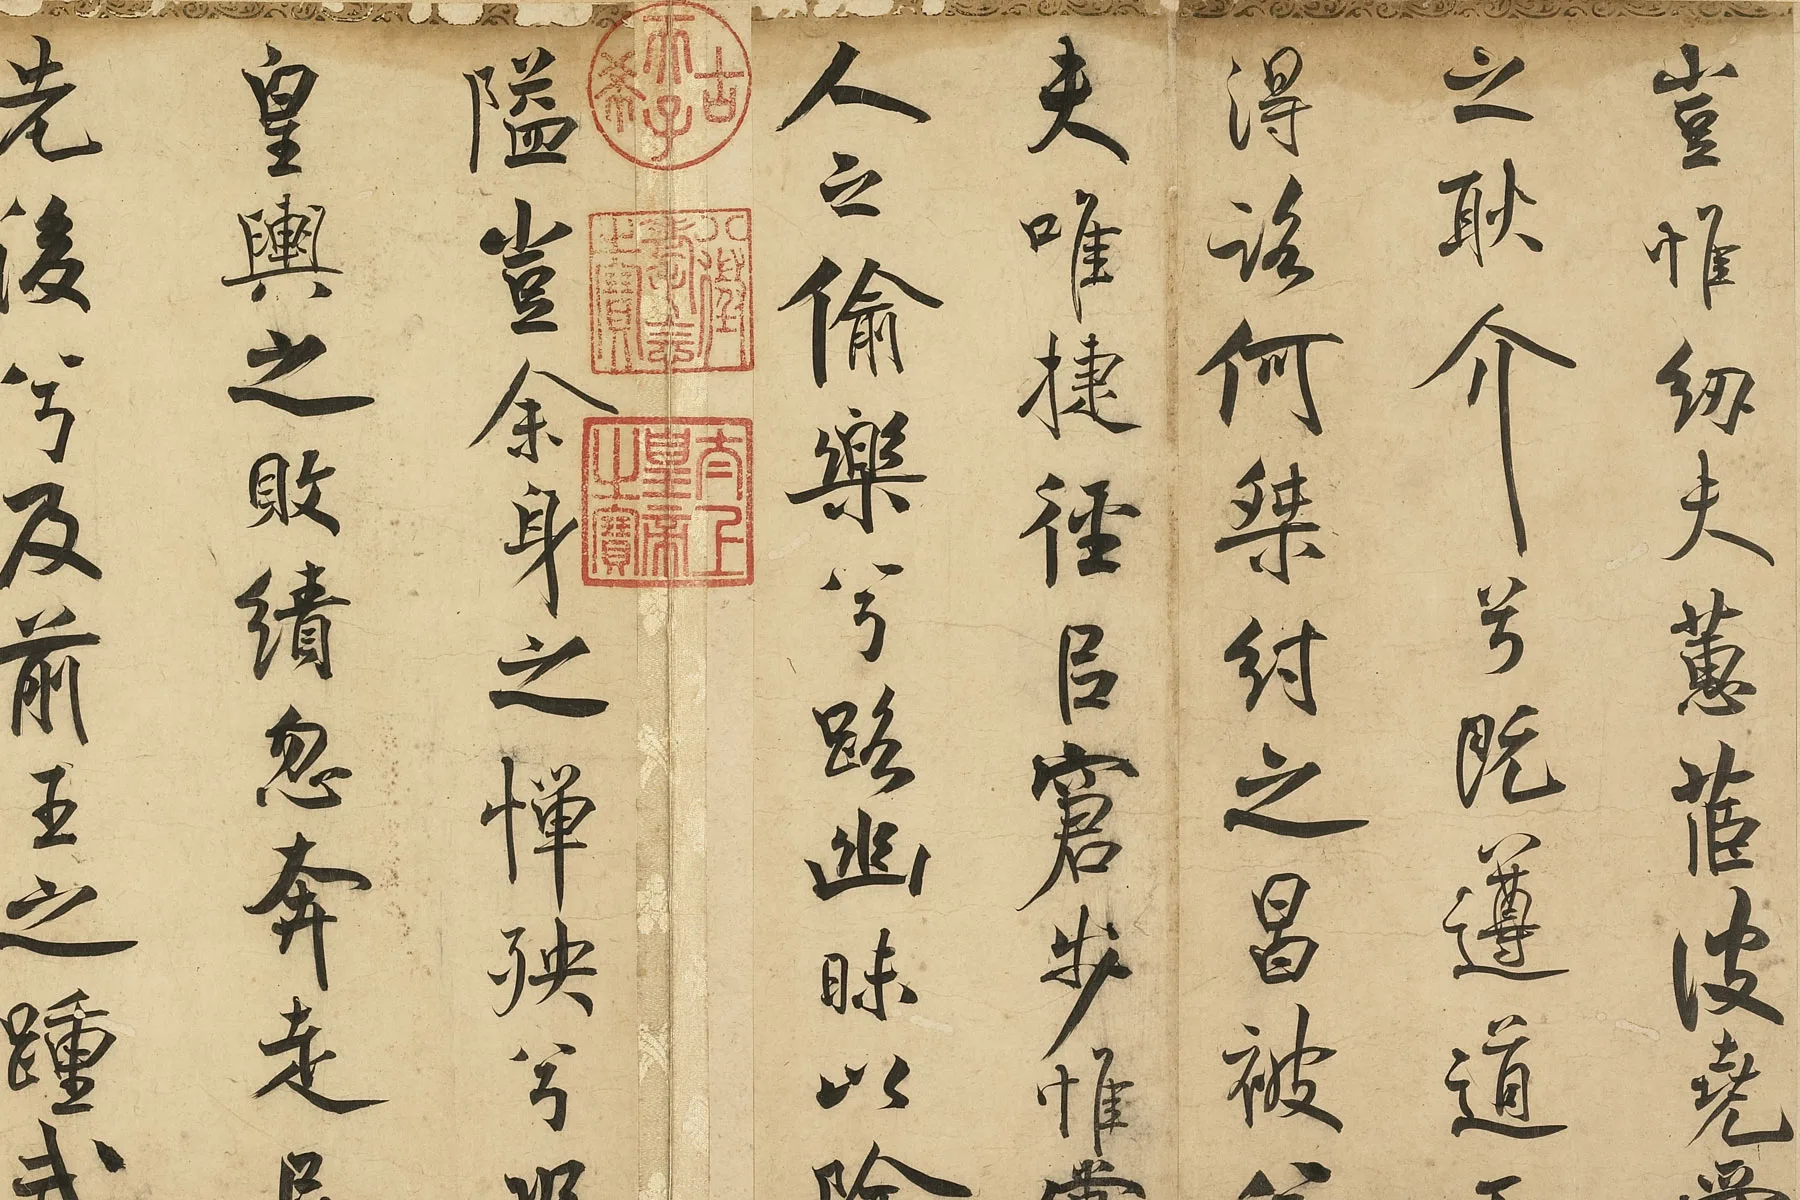 豈惟紉夫蕙茝彼堯舜
之耿介兮既遵道
得路何桀紂之昌被兮
夫唯捷徑㠯窘步惟黨
人之偷樂兮路幽昧以險
古希天子
八徵耄念之寶
太上皇帝之寶
隘豈余身之憚殃兮
皇輿之敗績忽奔走㠯
先後兮及前王之踵武